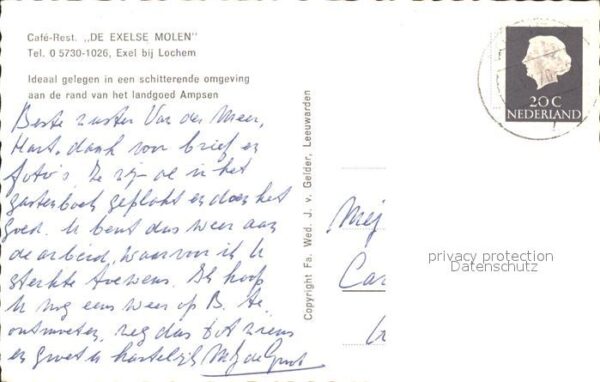 Café-Rest. „DE EXELSE MOLEN"
Tel. 0 5730-1026, Exel bij Lochem
Ideaal gelegen in een schitterende omgeving
aan de rand van het landgoed Ampsen
Beste zuster Van der Meer,
Hart. dank voor brief en
foto's. Ze zijn al in het
gastenboek geplakt en doen het
goed. U bent dus weer aan
de arbeid, waarvoor ik U
sterkte toewens. Ik hoop
U nog eens weer op B. te
ontmoeten, zeg dus tot ziens
en groet u hartelijk
Copyright Fa. Wed. J. v. Gelder, Leeuwarden
20 C
NEDERLAND
Mej
Car
privacy protection
Datenschutz